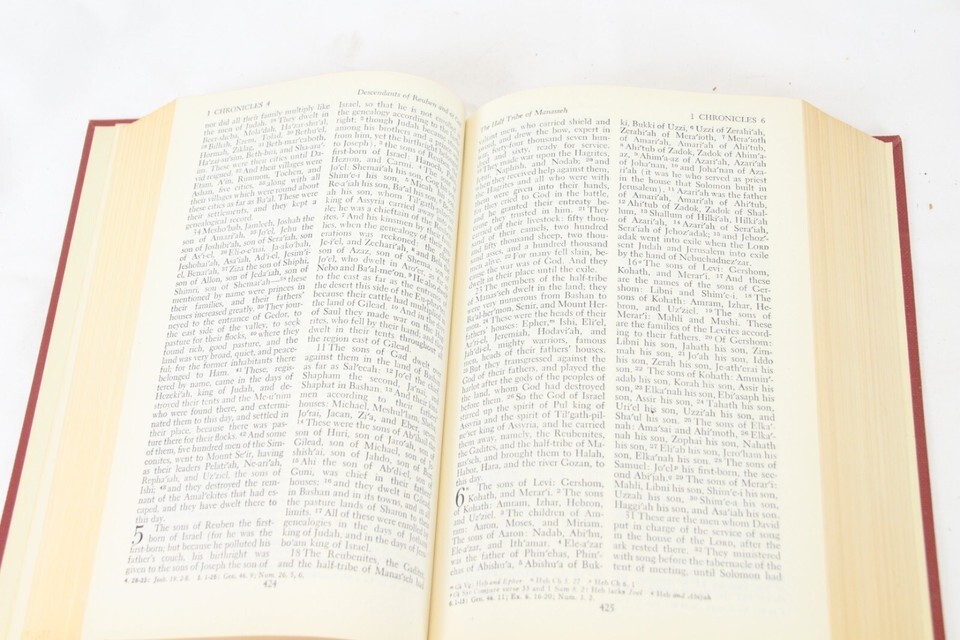 1 CHRONICLES 4
Descendants of Reuben and
nor did all their family multiply like
the men of Judah. 28 They dwelt in
Beer-sheba, Mola'dah, Ha'zar-shu'al,
29 Bilhah, Ezem, Tolad, 30 Bethu'el,
Hormah, Ziklag, 31 Beth-mar'caboth,
Ha'zar-su'sim, Beth-bir'i, and Sha-ara'-
im. These were their cities until Da-
vid reigned. 32 And their villages were
Etam, A'in, Rimmon, Tochen, and
Ashan, five cities, 33 along with all
their villages which were round about
these cities as far as Ba'al. These were
their settlements, and they kept a
genealogical record.
34 Mesho'bab, Jamlech, Joshah the
son of Amazi'ah, 35 Jo'el, Jehu the
son of Joshibi'ah, son of Serai'ah, son
of As'i-el, 36 Eli-o-e'nai, Ja-ako'bah,
Jeshohai'ah, Asai'ah, Ad'i-el, Jesim'i-
el, Benai'ah, 37 Ziza the son of Shiphi,
son of Allon, son of Jedai'ah, son of
Shimri, son of Shemai'ah—38 these
mentioned by name were princes in
their families, and their fathers'
houses increased greatly. 39 They jour-
neyed to the entrance of Gedor, to
the east side of the valley, to seek
pasture for their flocks, 40 where they
found rich, good pasture, and the
land was very broad, quiet, and peace-
ful; for the former inhabitants there
belonged to Ham. 41 These, regis-
tered by name, came in the days of
Hezeki'ah, king of Judah, and de-
stroyed their tents and the Me-u'nim
who were found there, and extermi-
nated them to this day, and settled in
their place, because there was pas-
ture there for their flocks. 42 And some
of them, five hundred men of the Sim-
eonites, went to Mount Se'ir, having
as their leaders Pelati'ah, Ne-ari'ah,
Repha'iah, and Uz'ziel, the sons of
Ishi; 43 and they destroyed the rem-
nant of the Amal'ekites that had es-
caped, and they have dwelt there to
this day.
5 The sons of Reuben the first-
born of Israel (for he was the
first-born; but because he polluted his
father's couch, his birthright was
given to the sons of Joseph the son of
Israel, so that he is not enrolled in
the genealogy according to the
right; 2 though Judah became strong
among his brothers and a prince
from him, yet the birthright
to Joseph), 3 the sons of Reuben, the
first-born of Israel: Hanoch, Pallu,
Hezron, and Carmi. 4 The sons of
Jo'el: Shemai'ah his son, Gog
Shim'e-i his son, 5 Micah his son,
Re-a'iah his son, Ba'al his son,
ah his son, whom Til'gath-pil
king of Assyria carried away into
ile; he was a chieftain of the Reuben-
ites. 7 And his kinsmen by their fami-
lies, when the genealogy of their gen-
erations was reckoned: the chief,
Je-i'el, and Zechari'ah, 8 and Bela the
son of Azaz, son of Shema, son of
Jo'el, who dwelt in Aro'er, as far as
Nebo and Ba'al-me'on. 9 He also dwelt
to the east as far as the entrance of
the desert this side of the Euphrates,
because their cattle had multiplied in
the land of Gilead. 10 And in the days
of Saul they made war on the Hag-
rites, who fell by their hand; and they
dwelt in their tents throughout all
the region east of Gilead.
11 The sons of Gad dwelt over
against them in the land of Bashan
as far as Sal'ecah: 12 Jo'el the chief,
Shapham the second, Ja'nai, and
Shaphat in Bashan. 13 And their kins-
men according to their fathers'
houses: Michael, Meshul'lam, Sheba,
Jo'rai, Jacan, Zi'a, and Eber, seven.
14 These were the sons of Ab'ihail the
son of Huri, son of Jaro'ah, son of
Gilead, son of Michael, son of Je-
shish'ai, son of Jahdo, son of Buz;
15 Ahi the son of Ab'di-el, son of
Guni, was chief in their fathers'
houses; 16 and they dwelt in Gilead,
in Bashan and in its towns, and in all
the pasture lands of Sharon to their
limits. 17 All of these were enrolled by
genealogies in the days of Jotham
king of Judah, and in the days of Jero-
bo'am king of Israel.
18 The Reubenites, the Gadites,
and the half-tribe of Manas'seh had
4. 28-33: Josh. 19. 2-8. 5. 1-20: Gen. 46. 9; Num. 26. 5, 6.
424
The Half Tribe of Manasseh
1 CHRONICLES 6
valiant men, who carried shield and
sword, and drew the bow, expert in
war, forty-four thousand seven hun-
dred and sixty, ready for service.
19 They made war upon the Hagrites,
Jetur, Naphish, and Nodab; 20 and
when they received help against them,
the Hagrites and all who were with
them were given into their hands,
for they cried to God in the battle,
and he granted their entreaty be-
cause they trusted in him. 21 They
carried off their livestock: fifty thou-
sand of their camels, two hundred
and fifty thousand sheep, two thou-
sand asses, and a hundred thousand
men alive. 22 For many fell slain, be-
cause the war was of God. And they
dwelt in their place until the exile.
23 The members of the half-tribe
of Manas'seh dwelt in the land; they
were very numerous from Bashan to
Ba'al-her'mon, Senir, and Mount Her-
mon. 24 These were the heads of their
fathers' houses: Epher, Ishi, Eli'el,
Az'ri-el, Jeremiah, Hodavi'ah, and
Jah'di-el, mighty warriors, famous
men, heads of their fathers' houses.
25 But they transgressed against the
God of their fathers, and played the
harlot after the gods of the peoples of
the land, whom God had destroyed
before them. 26 So the God of Israel
stirred up the spirit of Pul king of
Assyria, the spirit of Til'gath-pil-
ne'ser king of Assyria, and he carried
them away, namely, the Reubenites,
the Gadites, and the half-tribe of Ma-
nas'seh, and brought them to Halah,
Habor, Hara, and the river Gozan, to
this day.
6 The sons of Levi: Gershom,
Kohath, and Merar'i. 2 The sons
of Kohath: Amram, Izhar, Hebron,
and Uz'ziel. 3 The children of Am-
ram: Aaron, Moses, and Miriam.
The sons of Aaron: Nadab, Abi'hu,
Ele-a'zar, and Ith'amar. 4 Ele-a'zar
was the father of Phin'ehas, Phin'-
ehas of Abishu'a, 5 Abishu'a of Buk'-
ki, Bukki of Uzzi, 6 Uzzi of Zerahi'ah,
Zerahi'ah of Merai'oth, 7 Merai'oth
of Amari'ah, Amari'ah of Ahi'tub,
8 Ahi'tub of Zadok, Zadok of Ahim'a-
az, 9 Ahim'a-az of Azari'ah, Azari'ah
of Joha'nan, 10 and Joha'nan of Aza-
ri'ah (it was he who served as priest
in the house that Solomon built in
Jerusalem). 11 Azari'ah was the father
of Amari'ah, Amari'ah of Ahi'tub,
12 Ahi'tub of Zadok, Zadok of Shal-
lum, 13 Shallum of Hilki'ah, Hilki'ah
of Azari'ah, 14 Azari'ah of Serai'ah,
Serai'ah of Jehoz'adak; 15 and Jehoz'-
adak went into exile when the LORD
sent Judah and Jerusalem into exile
by the hand of Nebuchadnez'zar.
16 The sons of Levi: Gershom,
Kohath, and Merar'i. 17 And these
are the names of the sons of Ger-
shom: Libni and Shim'e-i. 18 The
sons of Kohath: Amram, Izhar, He-
bron, and Uz'ziel. 19 The sons of
Merar'i: Mahli and Mushi. These
are the families of the Levites accord-
ing to their fathers. 20 Of Gershom:
Libni his son, Jahath his son, Zim-
mah his son, 21 Jo'ah his son, Iddo
his son, Zerah his son, Je-ath'erai his
son. 22 The sons of Kohath: Ammin'-
adab his son, Korah his son, Assir his
son, 23 Elka'nah his son, Ebi'asaph his
son, Assir his son, 24 Tahath his son,
Uri'el his son, Uzzi'ah his son, and
Sha'ul his son. 25 The sons of Elka'-
nah: Ama'sai and Ahi'moth, 26 Elka'-
nah his son, Zophai his son, Nahath
his son, 27 Eli'ab his son, Jero'ham his
son, Elka'nah his son. 28 The sons of
Samuel: Jo'el his first-born, the sec-
ond Abi'jah. 29 The sons of Merar'i:
Mahli, Libni his son, Shim'e-i his son,
Uzzah his son, 30 Shim'e-a his son,
Haggi'ah his son, and Asai'ah his son.
31 These are the men whom David
put in charge of the service of song
in the house of the LORD, after the
ark rested there. 32 They ministered
with song before the tabernacle of the
tent of meeting, until Solomon had
Gk Vg: Heb and Epher Heb Ch 5. 27 Heb Ch 6. 1
Gk Syr Compare verse 33 and 1 Sam 8. 2: Heb lacks Joel Heb and Abijah
6. 1-15: Gen. 46. 11; Ex. 6. 16-20; Num. 3. 2.
425